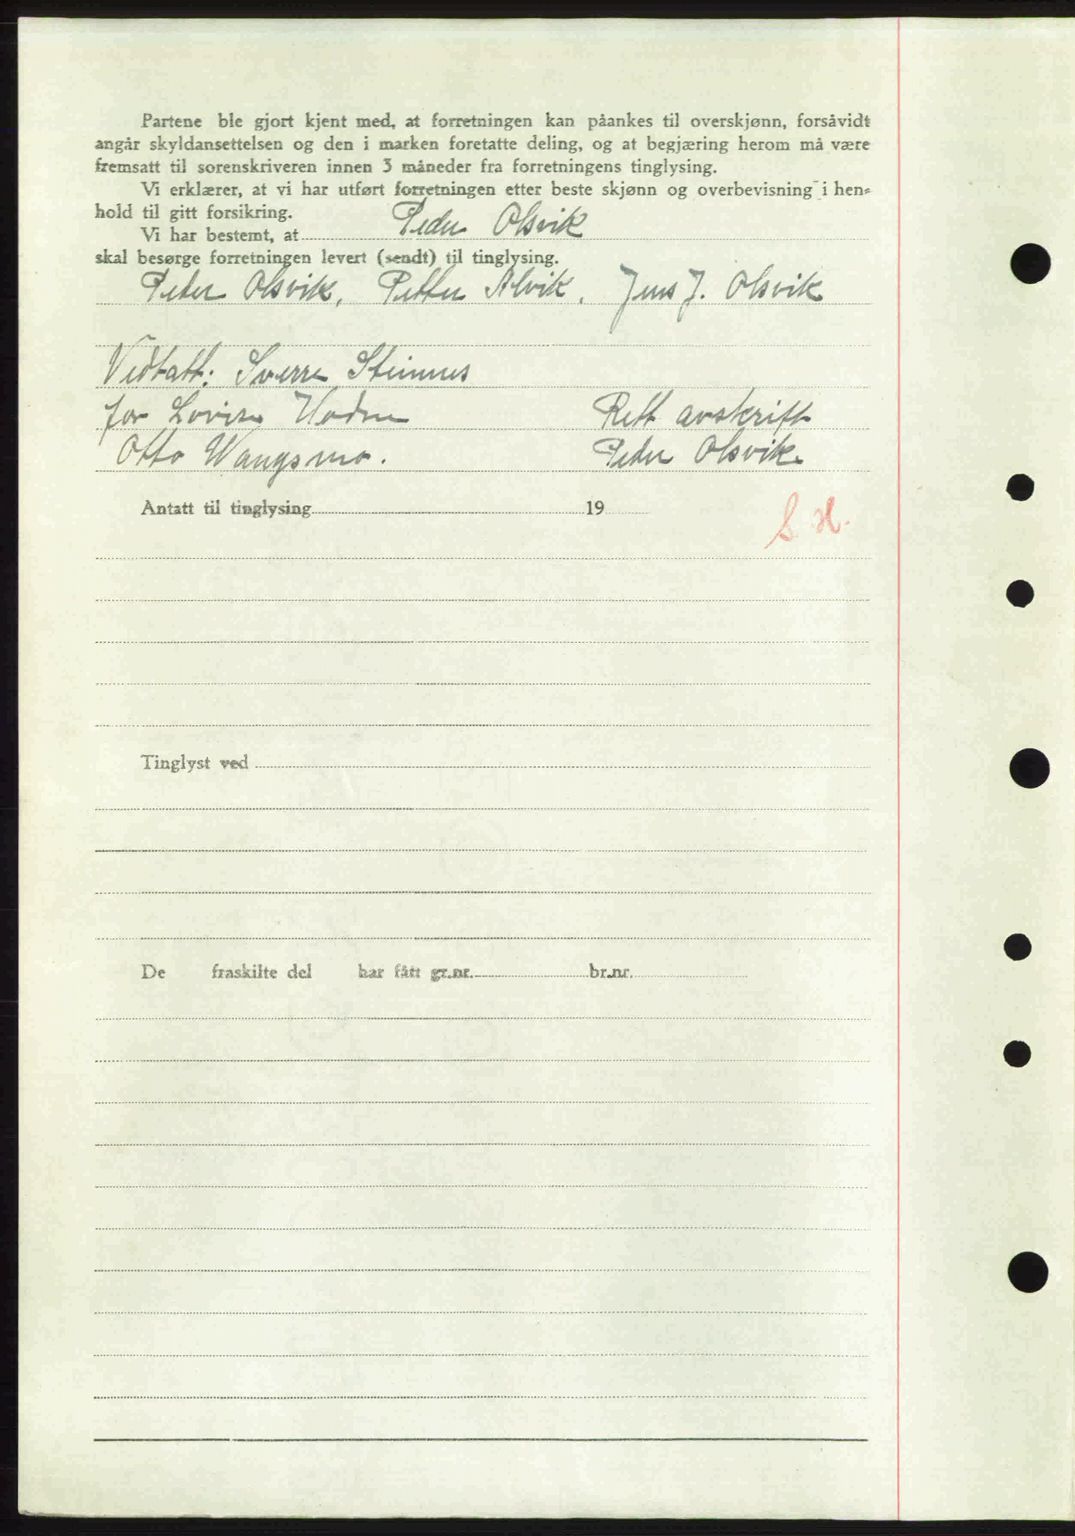 Partene ble gjort kjent med, at forretningen kan påankes til overskjønn, forsåvidt
angår skyldansettelsen og den i marken foretatte deling, og at begjæring herom må være
fremsatt til sorenskriveren innen 3 måneder fra forretningens tinglysing.
Vi erklærer, at vi har utført forretningen etter beste skjønn og overbevisning i hen-
hold til gitt forsikring.
Vi har bestemt, at Peder Olsvik
skal besørge forretningen levert (sendt) til tinglysing.
Peder Olsvik, Petter Alvik, Jens J. Olsvik
Vedtatt: Sverre Steinnes
for Lovise
Otto Wangsmo.
Rett avskrift
Peder Olsvik
Antatt til tinglysing 19
S H.
Tinglyst ved
De fraskilte del har fått gr.nr. br.nr.